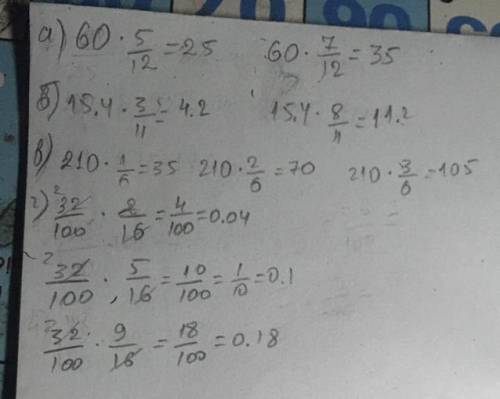 а) 60 · 5/12 = 25 60 · 7/12 = 35
б) 15.4 · 3/11 = 4.2 15.4 · 8/11 = 11.2
в) 210 · 1/6 = 35 210 · 2/6 = 70 210 · 3/6 = 105
г) 32/100 · 2/16 = 4/100 = 0.04
32/100 · 5/16 = 10/100 = 1/10 = 0.1
32/100 · 9/16 = 18/100 = 0.18